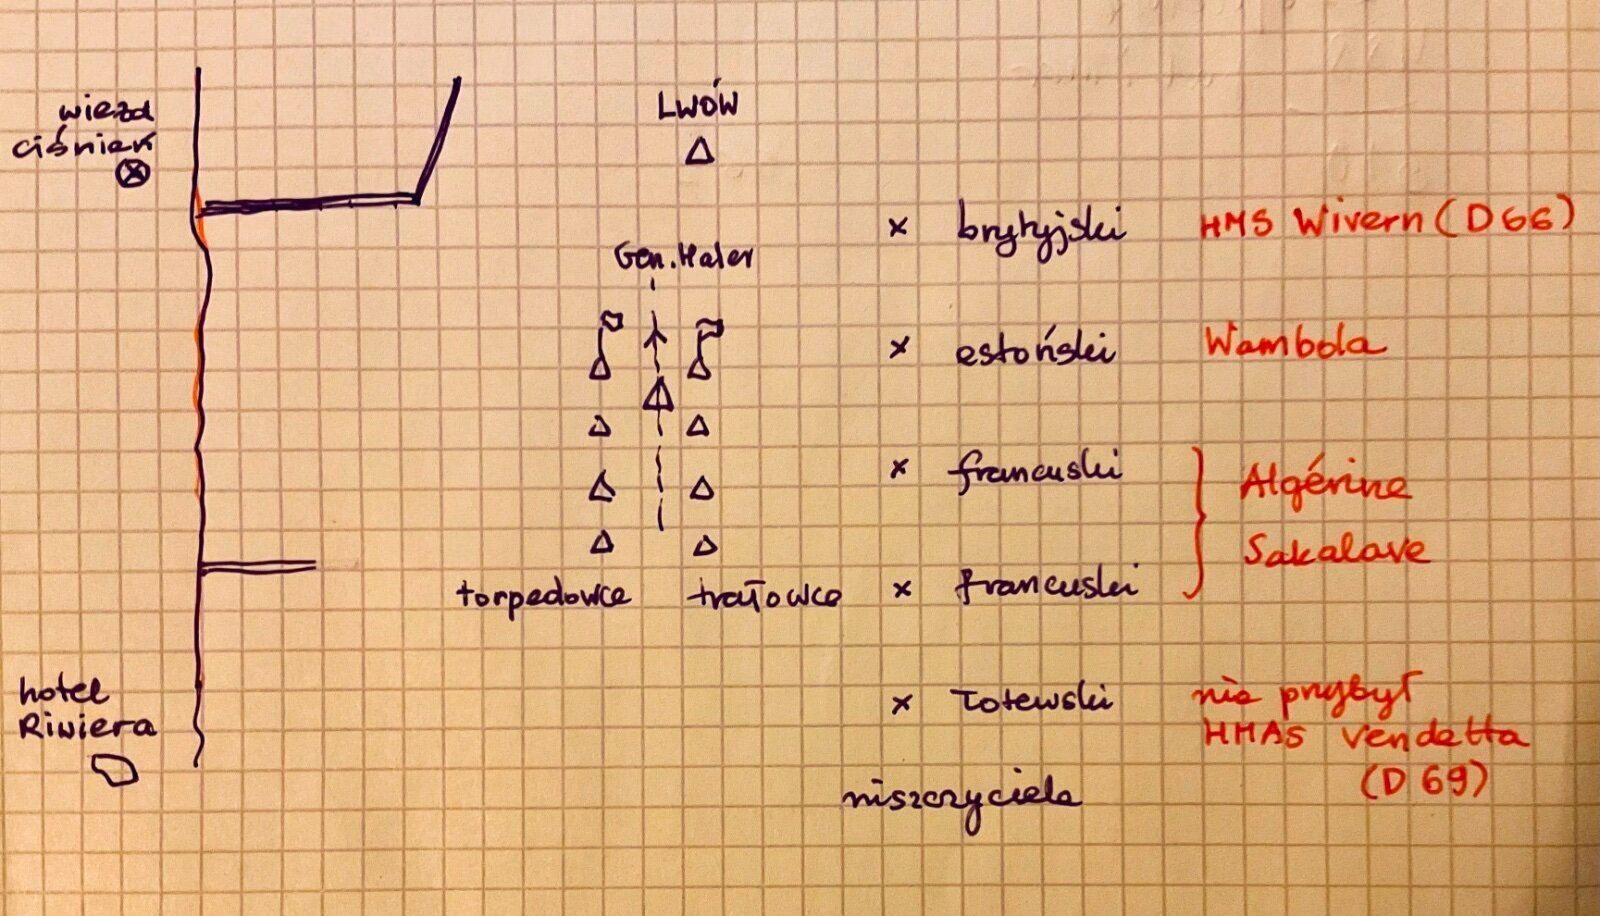 wieżd
ciśnień
LWÓW
Gen. Haler
brytyjski HMS Wivern (D66)
estoński Wambola
francuski
Algérine
Sakalave
francuski
torpedowce trałowce
hotel
Riwiera
łotewski nie przybył
HMAS Vendetta
(D 69)
niszczyciele